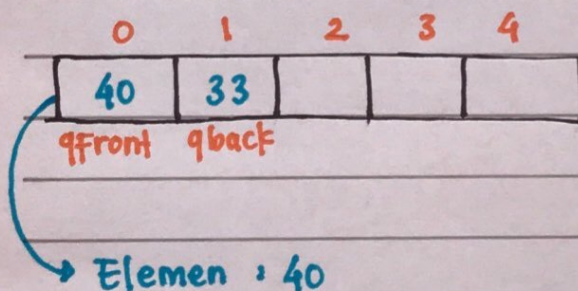 0 1 2 3 4
40 33
qfront qback
Elemen : 40